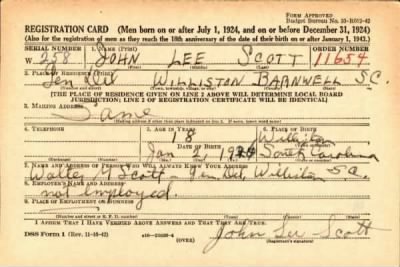 FORM APPROVED
REGISTRATION CARD (Men born on or after July 1, 1924, and on or before December 31, 1924)
(Also for the registration of men as they reach the 18th anniversary of the date of their birth on or after January 1, 1943.)
SERIAL NUMBER 1. NAME (Print) ORDER NUMBER
W 258 JOHN LEE SCOTT 11654
(First) (Middle) (Last)
2. PLACE OF RESIDENCE (Print)
Gen Del WILLISTON BARNWELL S.C.
(Number and street) (Town, township, village, or city) (County) (State)
[THE PLACE OF RESIDENCE GIVEN ON LINE 2 ABOVE WILL DETERMINE LOCAL BOARD
JURISDICTION; LINE 2 OF REGISTRATION CERTIFICATE WILL BE IDENTICAL]
3. MAILING ADDRESS
Same
4. TELEPHONE 5. AGE IN YEARS 6. PLACE OF BIRTH
18 Williston
DATE OF BIRTH
Jan 1924 South Carolina
7. NAME AND ADDRESS OF PERSON WHO WILL ALWAYS KNOW YOUR ADDRESS
Walter Scott - Gen. Del. Williston S.C.
8. EMPLOYER'S NAME AND ADDRESS
not employed.
9. PLACE OF EMPLOYMENT OR BUSINESS
(Number and street or R. F. D. number) (Town) (County) (State)
I AFFIRM THAT I HAVE VERIFIED ABOVE ANSWERS AND THAT THEY ARE TRUE.
DSS Form 1 (Rev. 11-16-42) (OVER) John Lee Scott
(Registrant's signature)